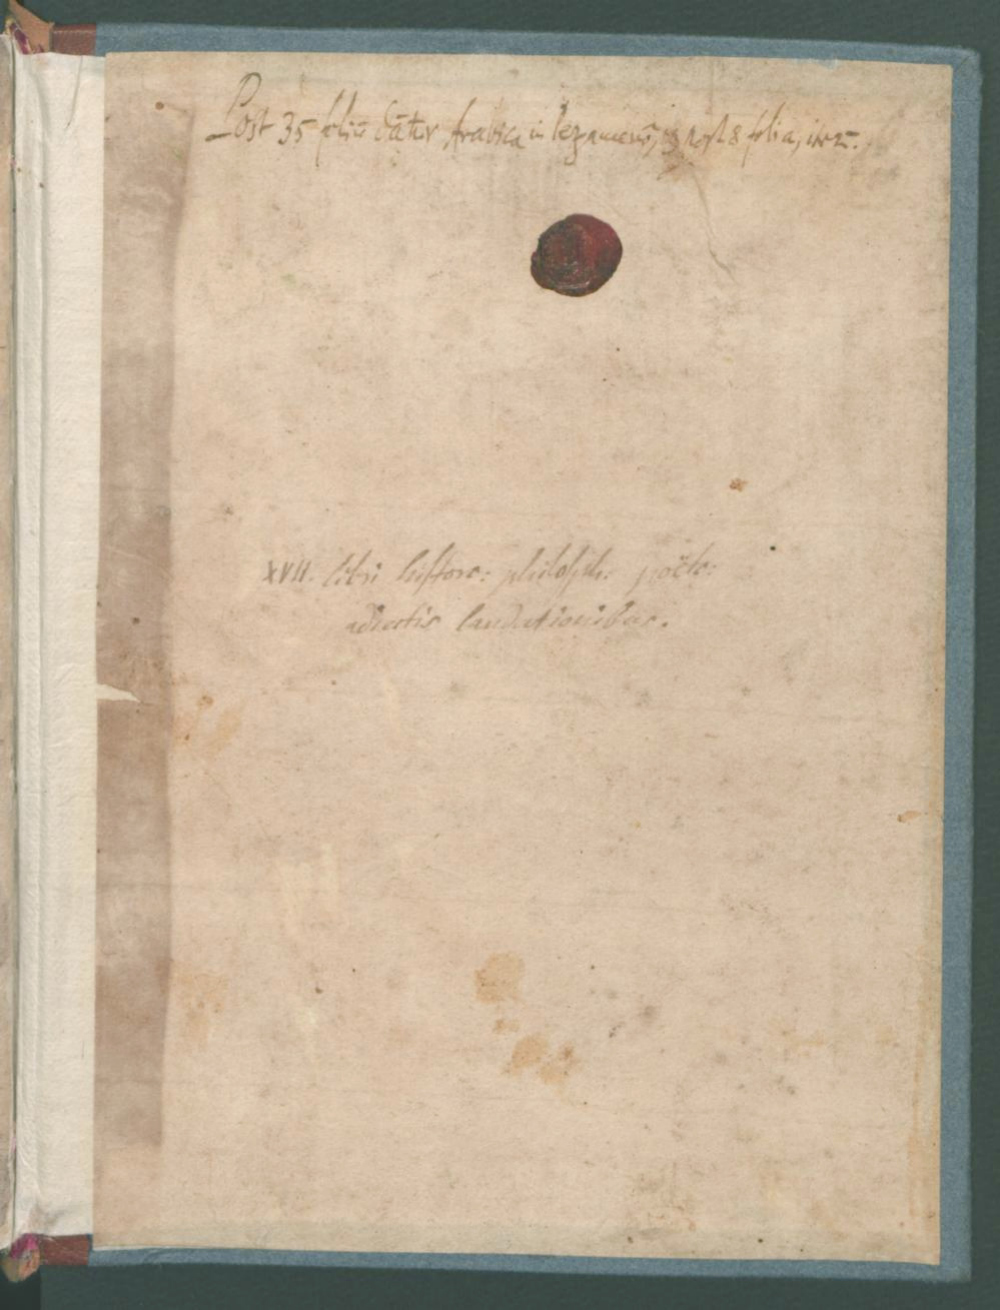 Post 35 foliũ dãtur Arabica in legamenõ, post 8 folia, in 25.
XVII. libri histore: philosph: poëte:
adiectis laudationibus.